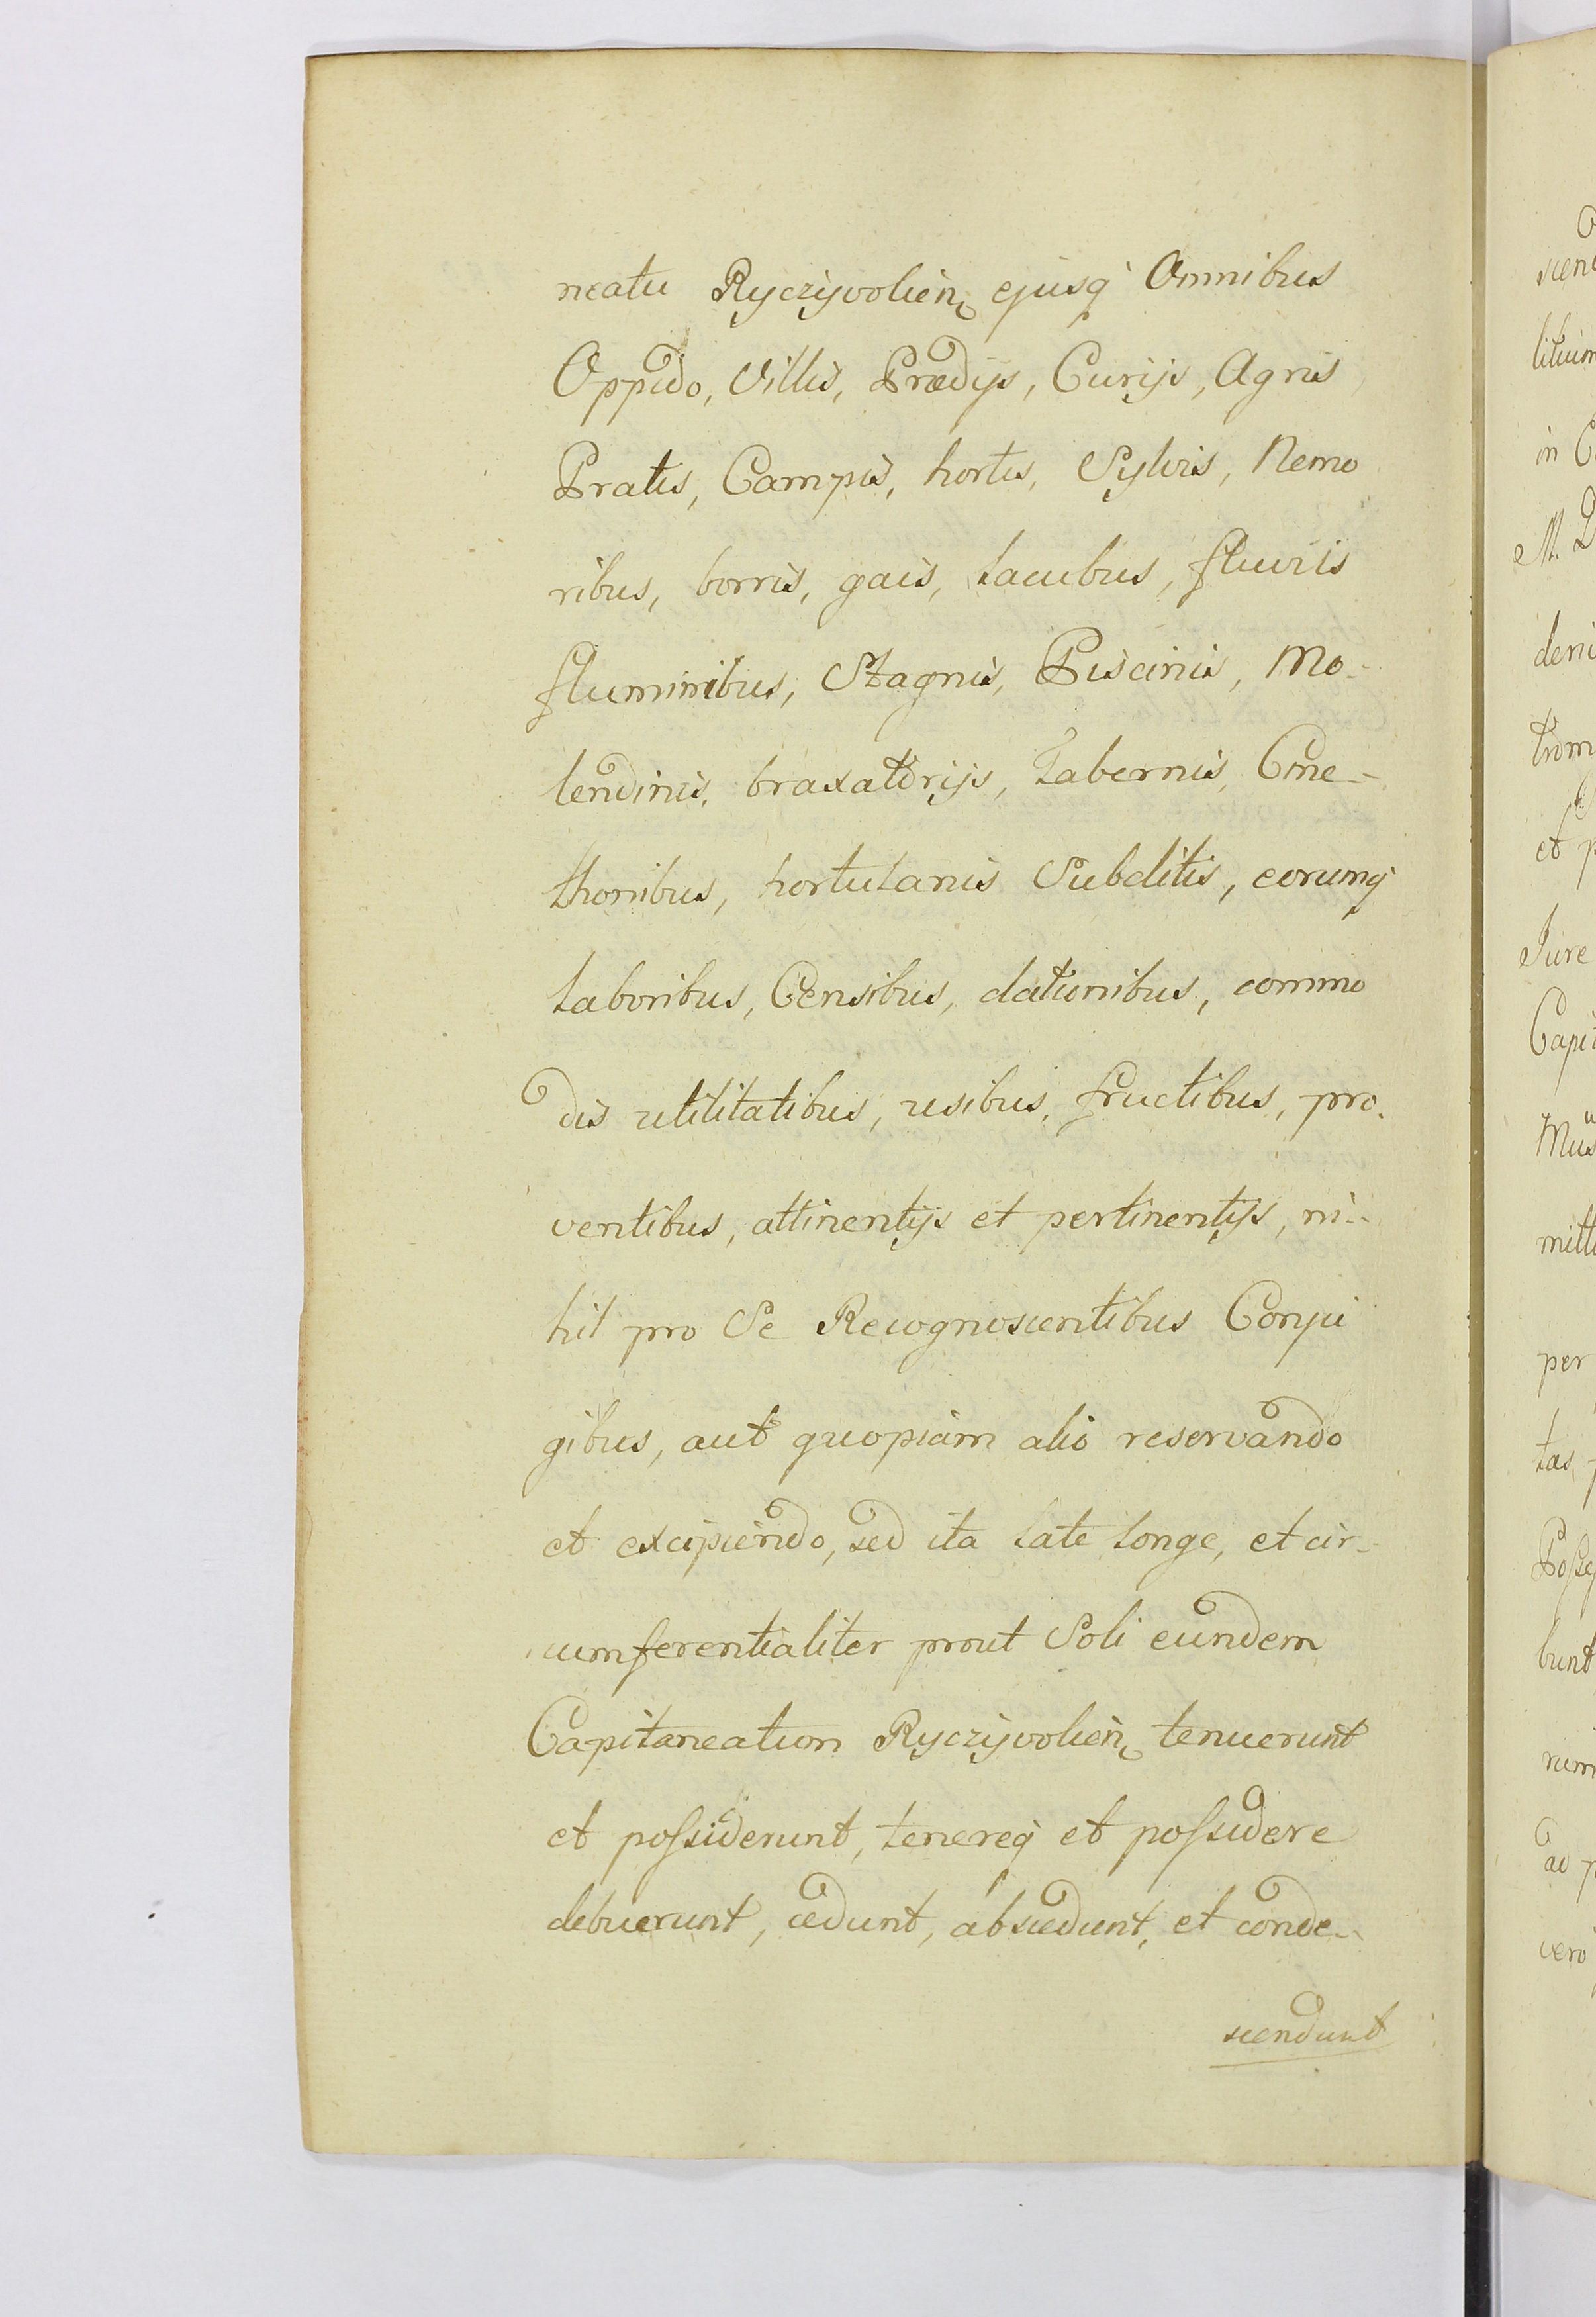 neatu Ryczyvolien ejusq Omnibus
Oppido, Villis, Prædijs, Curijs, Agris
Pratis, Campis, hortis, Sylvis, Nemo
ribus, borris, gais, Lacubus, fluviis
fluminibus, Stagnis, Piscinis, Mo-
lendinis, braxatorijs, Tabernis, Cme-
thonibus, hortulanis Subditis, eorumq
Laboribus, Censibus, dationibus, commo
dis utilitatibus, usibus, fructibus, pro-
ventibus, attinentijs et pertinentijs, ni-
hil pro Se Recognoscentibus Conju
gibus, aut quopiam alio reservando
et excipiendo, sed ita late longe, et cir-
cumferentialiter prout Soli eundem
Capitaneatum Ryczyvolien tenuerunt
et possiderunt, tenereq et possidere
debuerunt, cedunt, abscedunt, et conde-
scendunt